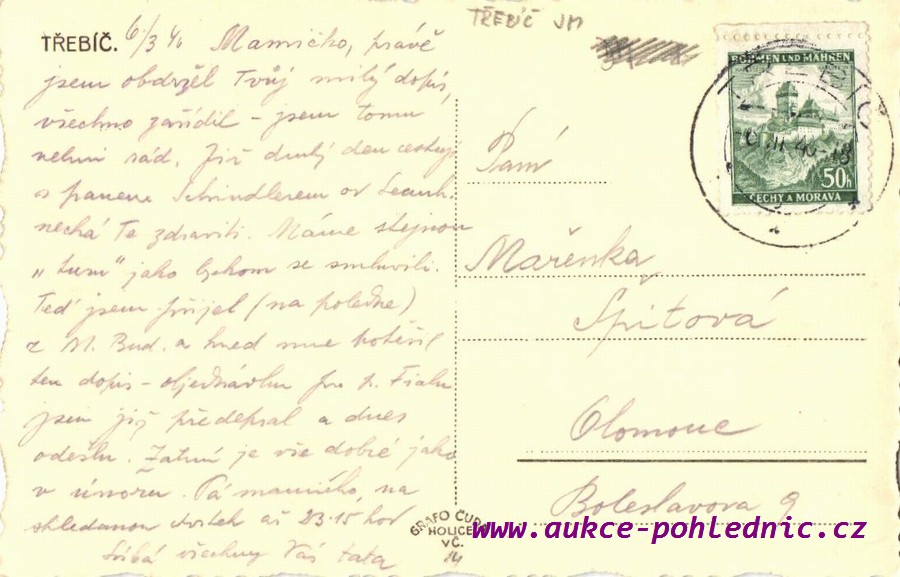 TŘEBÍČ JM
TŘEBÍČ. 6/3 40 Mamičko, právě
jsem obdržel Tvůj milý dopis,
všechno zařídil – jsem tomu
velmi rád. Již druhý den cestuji
s panem Schindlerem
nechá Te zdraviti. Máme stejnou
„turu" jako bychom se smluvili.
Teď jsem přijel (na poledne)
z M. Bud. a hned mne potěšil
ten dopis – objednávku pro p. Fialu
jsem již předepsal a dnes
odešlu. Zatím je vše dobré jako
v únoru. Pá maminko, na
shledanou čtvrtek až 23·15 hod
líbá všechny Váš tata
BÖHMEN UND MÄHREN
50h
ČECHY A MORAVA
TŘEBÍČ
Paní
Mařenka
Špitová
Olomouc
Boleslavova 9
GRAFO ČUDA
HOLICE
VČ.
www.aukce-pohlednic.cz